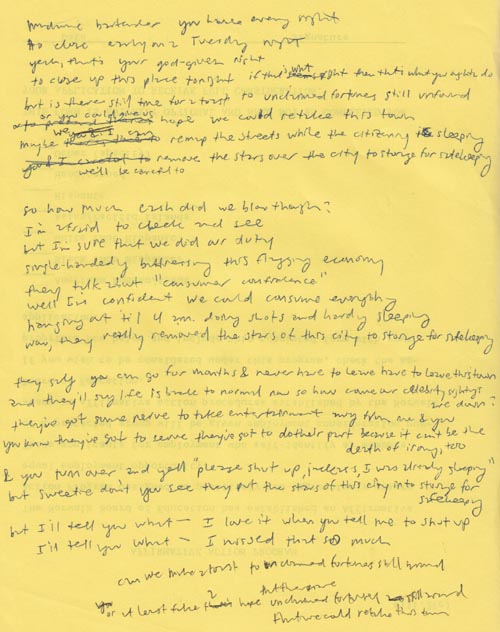 madame bartender you have every right
to close early on a Tuesday night
yeah, that's your god-given right
to close up this place tonight if that is what right then that's what you oughta do
but is there still time for a toast to unclaimed fortunes still unfound
or you could give us hope we could retake this town
maybe we can remap the streets while the citizenry is sleeping
we'll be careful to remove the stars over the city to storage for safekeeping
so how much cash did we blow though?
I'm afraid to check and see
but I'm sure that we did our duty
single-handedly buttressing this flagging economy
they talk about "consumer confidence"
well I'm confident we could consume everything
hanging out 'til 4 a.m. doing shots and hardly sleeping
wow, they really removed the stars of this city to storage for safekeeping
they say you can go for months & never have to leave have to leave this town
and they'll say life is back to normal now so how come our celebrity sightings
are down?
they've got some nerve to take entertainment away from me & you
you know they've got to serve they've got to do their part because it can't be the
death of irony, too
& you turn over and yell "please shut up, , I was already sleeping"
but sweetie don't you see they put the stars of this city into storage for
safekeeping
but I'll tell you what — I love it when you tell me to shut up
I'll tell you what — I missed that so much
can we make a toast to unclaimed fortunes still bound
or at least fake a hope unclaimed fortunes still bound
future could retake this town